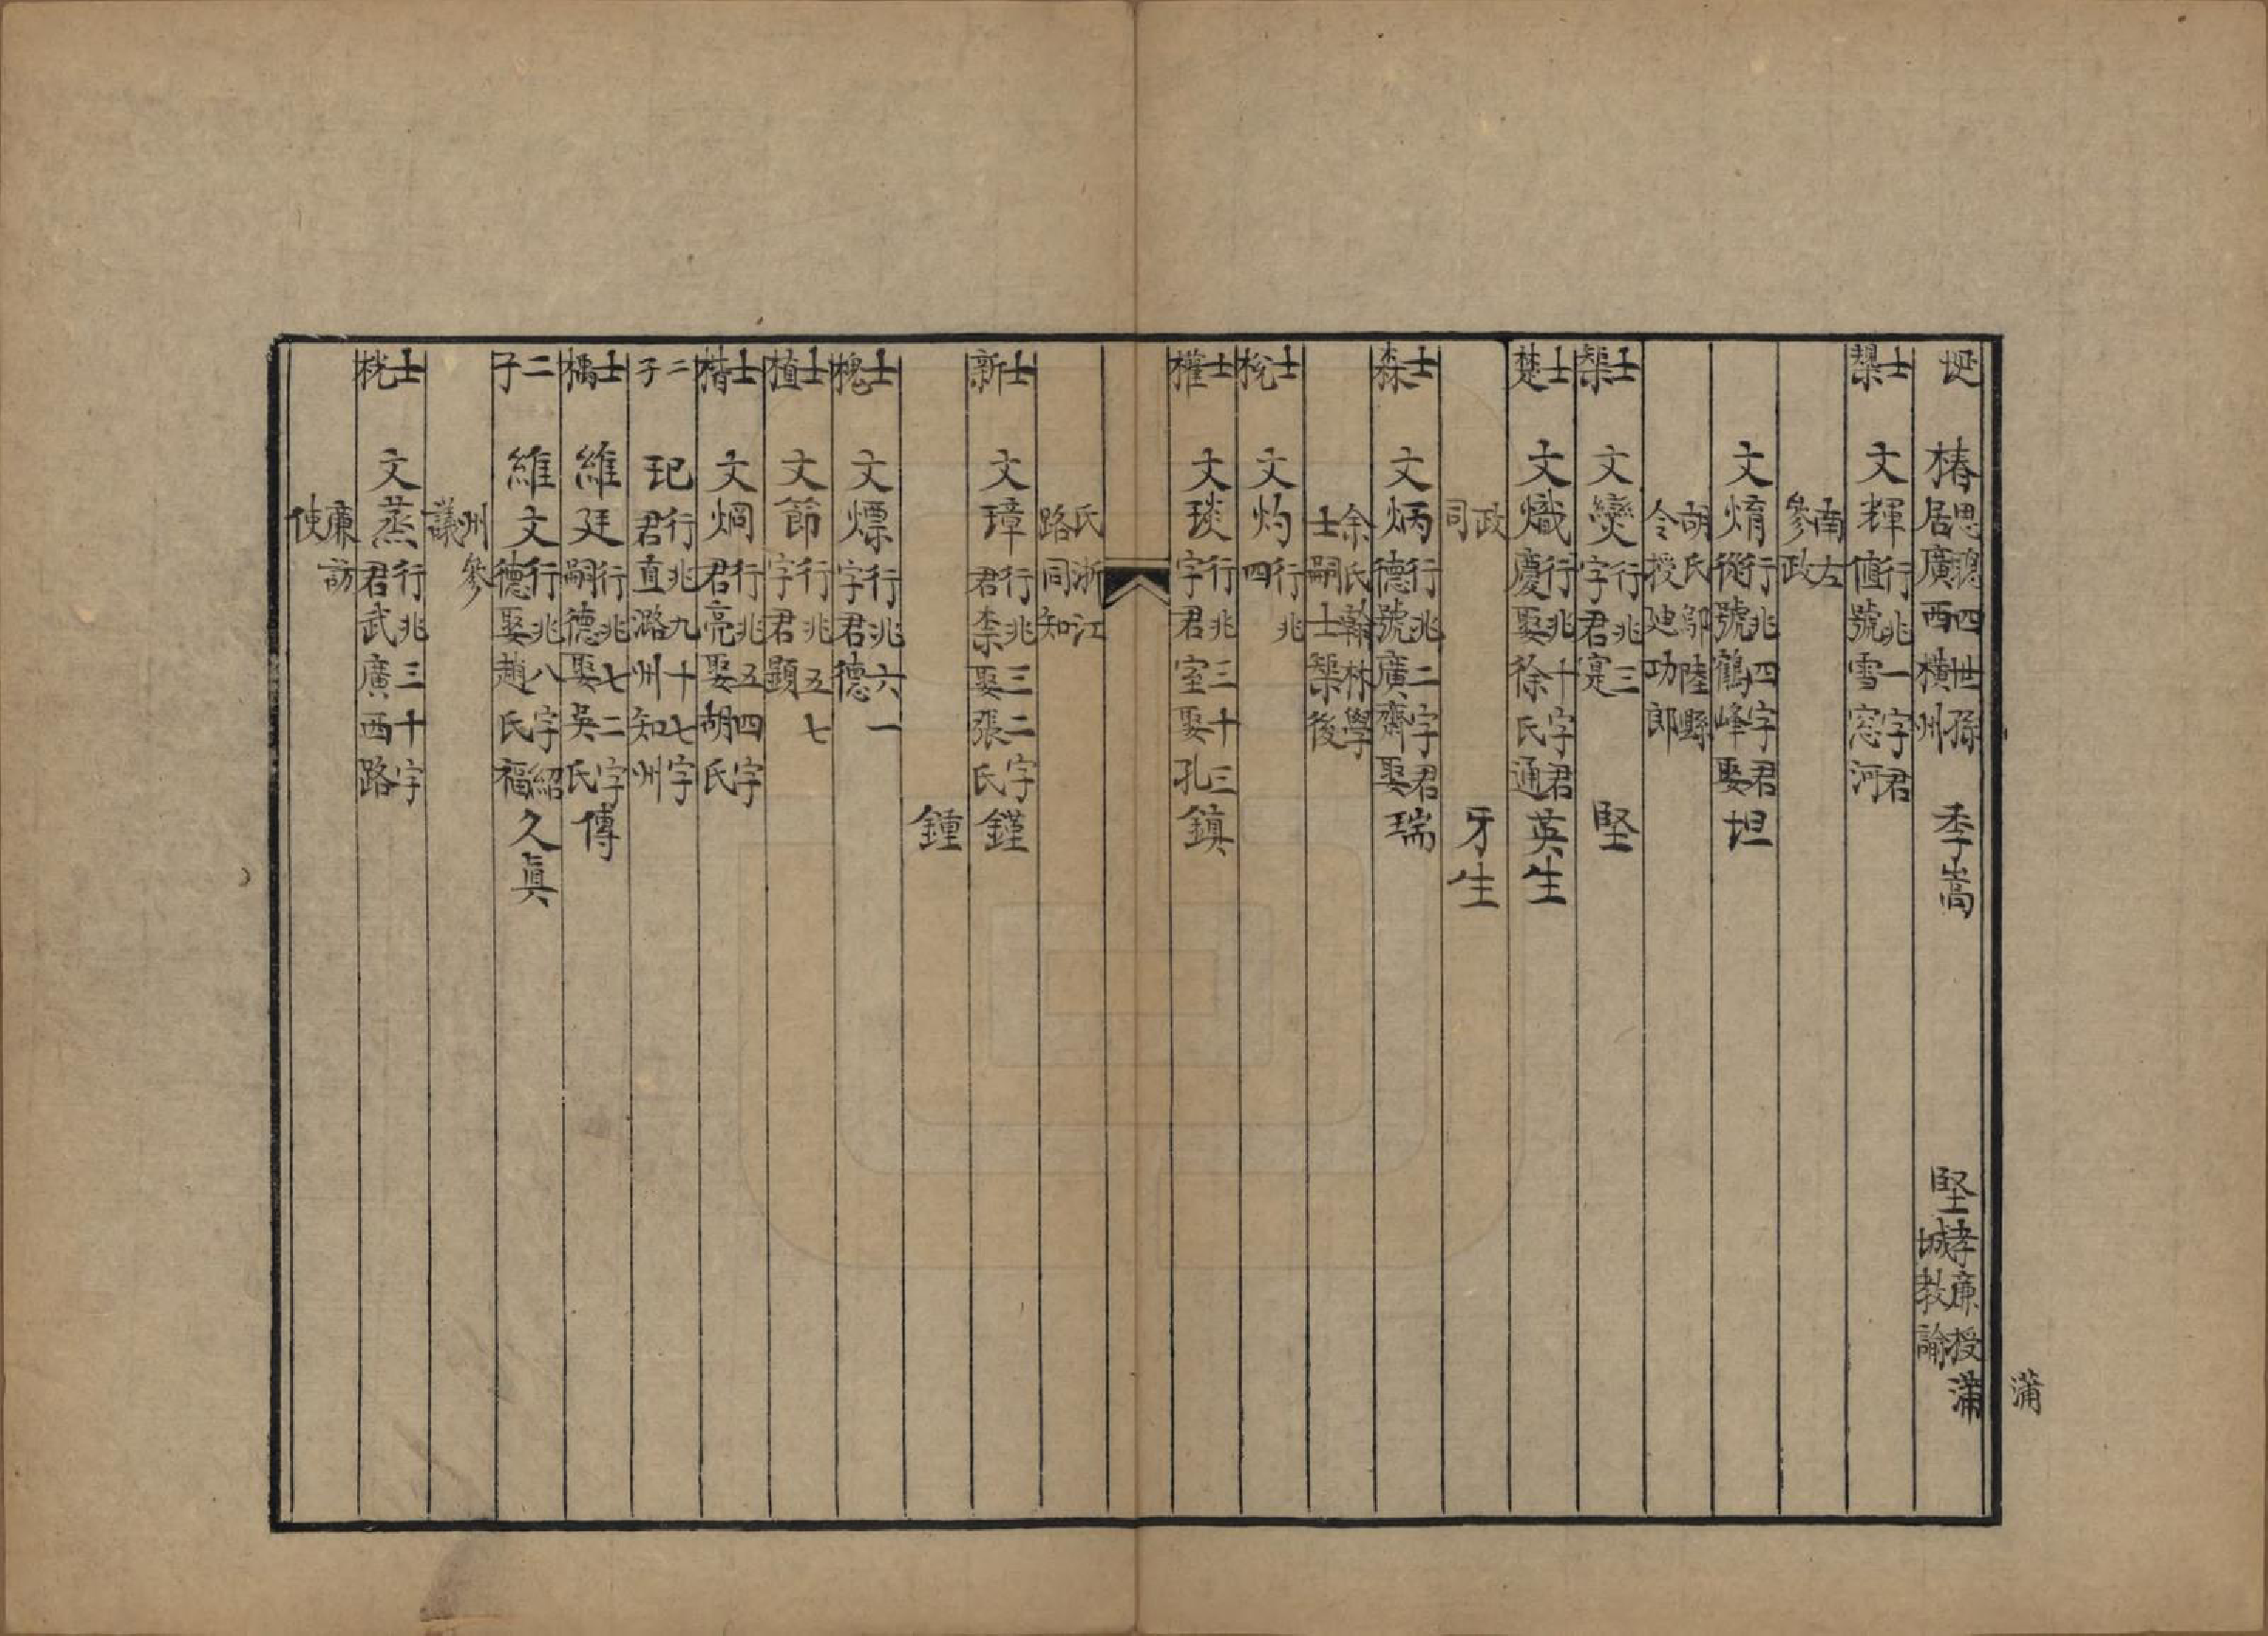 蒲
埏 椿 思聰四世孫居廣西橫州 季嵩 堅 孝廉授蒲城教諭
士槼 文輝 行兆一字君値號雪窓河
南左參政
文焴 行兆四字君從號鶴峰娶 坦
胡氏鄔陸縣令授廸功郎
士榘 文㷡 行兆三字君寔 堅
士楚 文熾 行兆十字君慶娶徐氏通 英生
政司 牙生
士森 文炳 行兆二字君德號廣齋娶 瑞
余氏翰林學士嗣士榘後
士棁 文灼 行兆四
士權 文琰 行兆三十三字君室娶孔 鎮
氏浙江路同知
士新 文璋 行兆三二字君柰娶張氏 鏷
鍾
士槐 文熛 行兆六一字君德
士植 文節 行兆五七字君顯
士楷 文炯 行兆五四字君亮娶胡氏
二子 玘 行兆九十七字君直潞州知州
士橘 維廷 行兆七二字嗣德娶吳氏 傳
二子 維文 行兆八字紹德娶趙氏福 久眞
州參議
士桄 文烝 行兆三十字君武廣西路
廉訪使